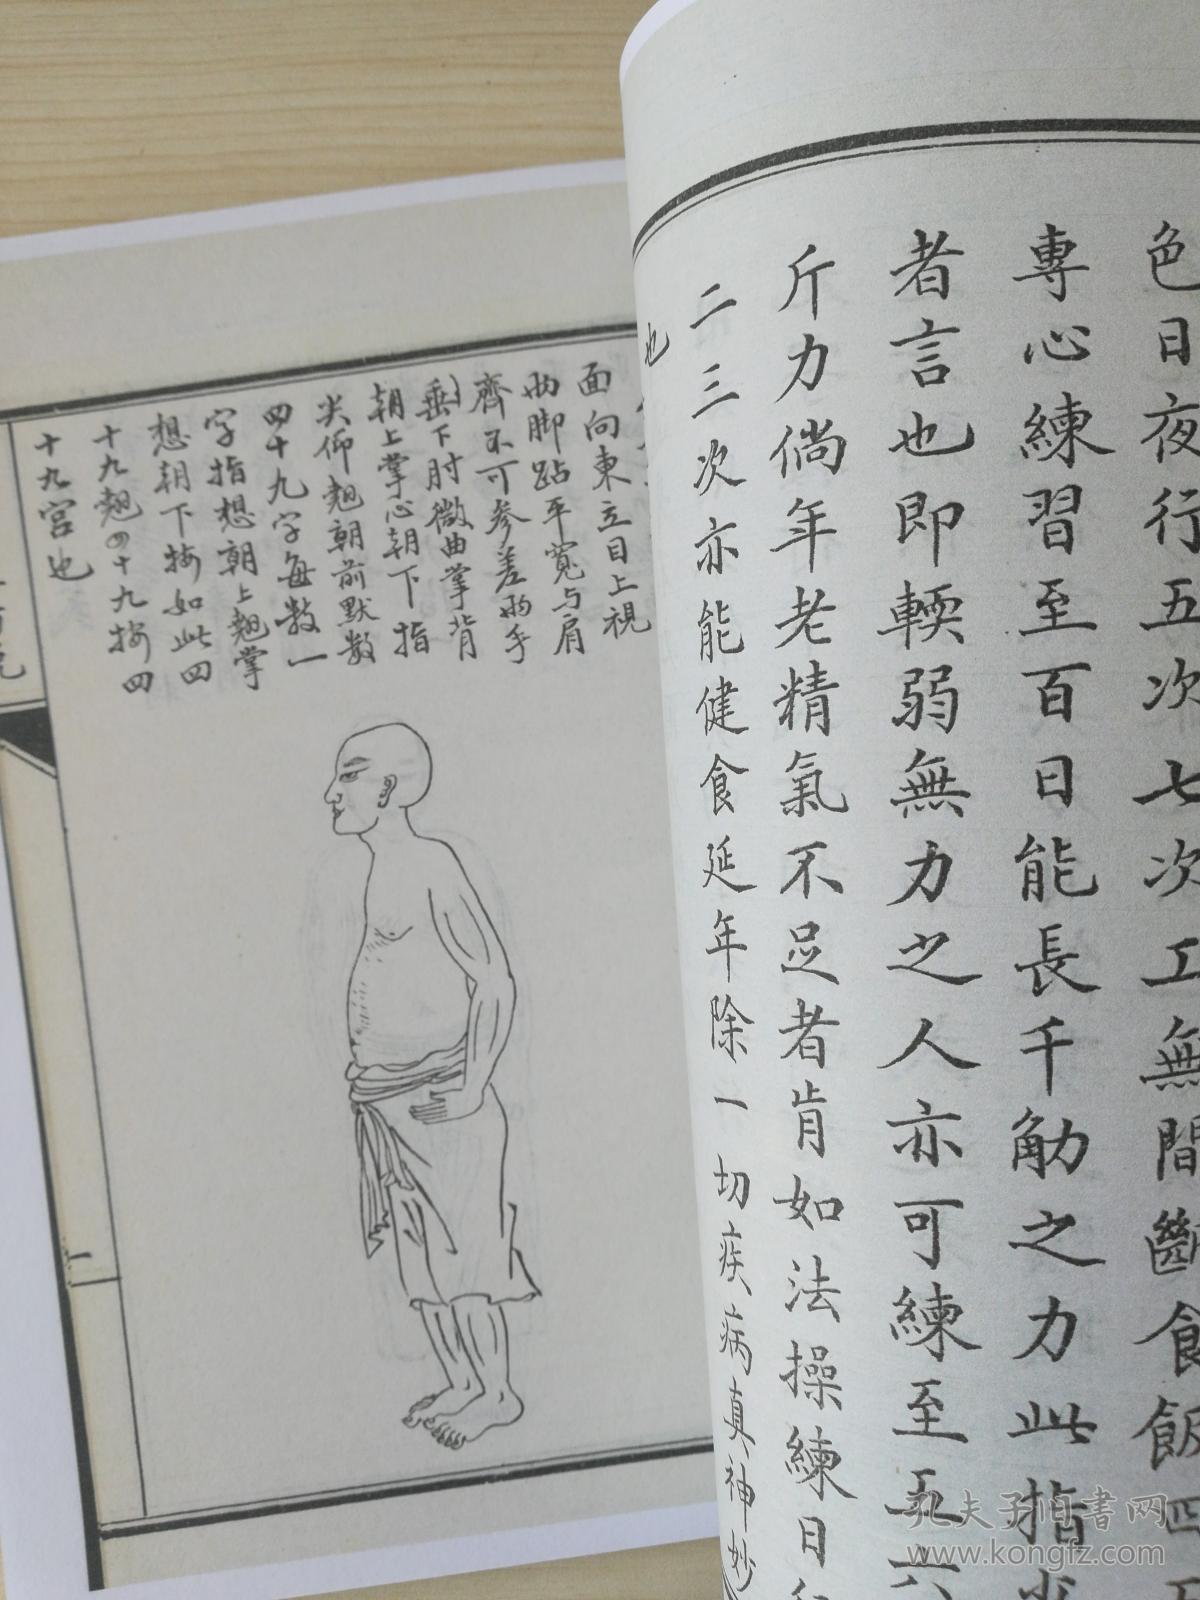 色日夜行五次七次工無間斷食飯四
專心練習至百日能長千觔之力此指
者言也即輭弱無力之人亦可練至五六
斤力倘年老精氣不足者肯如法操練日
二三次亦能健食延年除一切疾病真神妙
也
面向東立目上視
兩脚跕平寬与肩
齊不可参差兩手
垂下肘微曲掌背
朝上掌心朝下指
尖仰翹朝前默数
四十九字每数一
字指想朝上翹掌
想朝下按如此四
十九翹四十九按四
十九宫也
一
孔夫子旧书网
www.kongfz.com